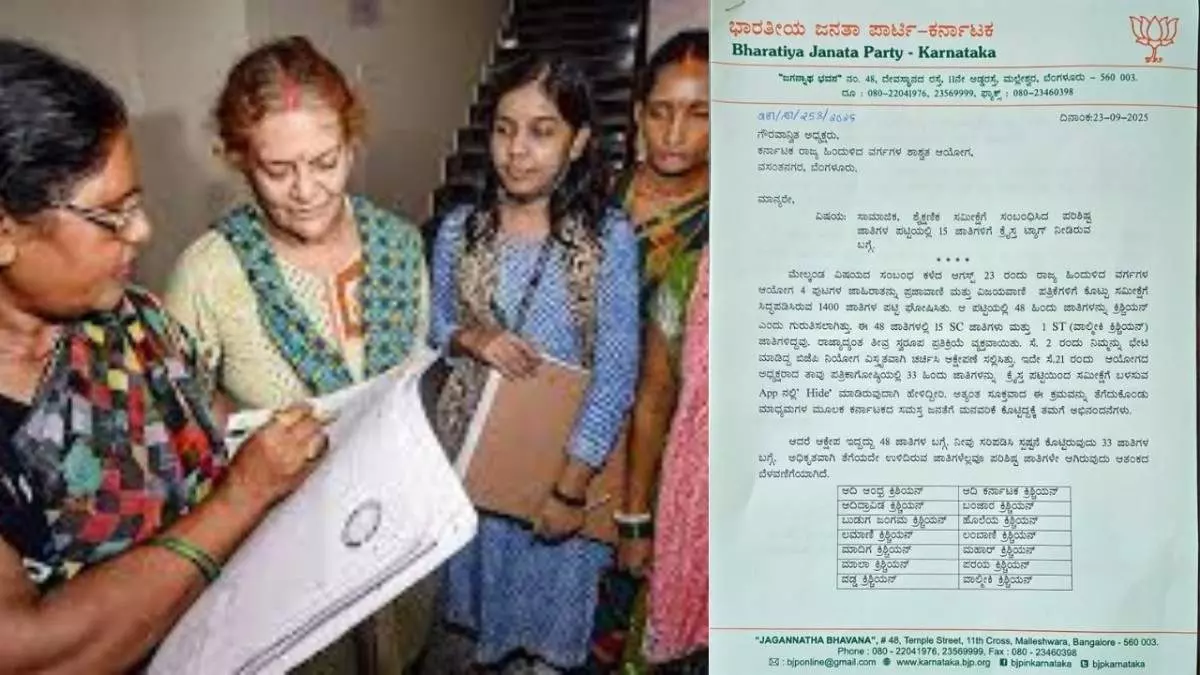 ಭಾರತೀಯ ಜನತಾ ಪಾರ್ಟಿ-ಕರ್ನಾಟಕ
Bharatiya Janata Party - Karnataka
"ಜಗನ್ನಾಥ ಭವನ" ನಂ. 48, ದೇವಸ್ಥಾನದ ರಸ್ತೆ, 11ನೇ ಅಡ್ಡರಸ್ತೆ, ಮಲ್ಲೇಶ್ವರ, ಬೆಂಗಳೂರು - 560 003.
ದೂ : 080-22041976, 23569999, ಫ್ಯಾಕ್ಸ್ : 080-23460398
ದಿನಾಂಕ:23-09-2025
ಗೌರವಾನ್ವಿತ ಅಧ್ಯಕ್ಷರು,
ಕರ್ನಾಟಕ ರಾಜ್ಯ ಹಿಂದುಳಿದ ವರ್ಗಗಳ ಶಾಶ್ವತ ಆಯೋಗ,
ವಸಂತನಗರ, ಬೆಂಗಳೂರು,
ಮಾನ್ಯರೇ,
ವಿಷಯ: ಸಾಮಾಜಿಕ, ಶೈಕ್ಷಣಿಕ ಸಮೀಕ್ಷೆಗೆ ಸಂಬಂಧಿಸಿದ ಪರಿಶಿಷ್ಟ
ಜಾತಿಗಳ ಪಟ್ಟಿಯಲ್ಲಿ 15 ಜಾತಿಗಳಿಗೆ ಕ್ರೈಸ್ತ ಟ್ಯಾಗ್ ನೀಡಿರುವ
ಬಗ್ಗೆ.
* * * *
ಮೇಲ್ಕಂಡ ವಿಷಯದ ಸಂಬಂಧ ಕಳೆದ ಆಗಸ್ಟ್ 23 ರಂದು ರಾಜ್ಯ ಹಿಂದುಳಿದ ವರ್ಗಗಳ
ಆಯೋಗ 4 ಪುಟಗಳ ಜಾಹಿರಾತನ್ನು ಪ್ರಜಾವಾಣಿ ಮತ್ತು ವಿಜಯವಾಣಿ ಪತ್ರಿಕೆಗಳಿಗೆ ಕೊಟ್ಟು ಸಮೀಕ್ಷೆಗೆ
ಸಿದ್ಧಪಡಿಸಿರುವ 1400 ಜಾತಿಗಳ ಪಟ್ಟಿ ಘೋಷಿಸಿತು. ಆ ಪಟ್ಟಿಯಲ್ಲಿ 48 ಹಿಂದು ಜಾತಿಗಳನ್ನು ಕ್ರಿಶ್ಚಿಯನ್
ಎಂದು ಗುರುತಿಸಲಾಗಿತ್ತು. ಈ 48 ಜಾತಿಗಳಲ್ಲಿ 15 SC ಜಾತಿಗಳು ಮತ್ತು 1 ST (ವಾಲ್ಮೀಕಿ ಕ್ರಿಶ್ಚಿಯನ್)
ಜಾತಿಗಳಿದ್ದವು. ರಾಜ್ಯಾದ್ಯಂತ ತೀವ್ರ ಸ್ವರೂಪ ಪ್ರತಿಕ್ರಿಯೆ ವ್ಯಕ್ತವಾಯಿತು. ಸೆ. 2 ರಂದು ನಿಮ್ಮನ್ನು ಭೇಟಿ
ಮಾಡಿದ್ದ ಬಿಜೆಪಿ ನಿಯೋಗ ವಿಸ್ತೃತವಾಗಿ ಚರ್ಚಿಸಿ ಆಕ್ಷೇಪಣೆ ಸಲ್ಲಿಸಿತ್ತು. ಇದೇ ಸೆ.21 ರಂದು ಆಯೋಗದ
ಅಧ್ಯಕ್ಷರಾದ ತಾವು ಪತ್ರಿಕಾಗೋಷ್ಠಿಯಲ್ಲಿ 33 ಹಿಂದು ಜಾತಿಗಳನ್ನು ಕ್ರೈಸ್ತ ಪಟ್ಟಿಯಿಂದ ಸಮೀಕ್ಷೆಗೆ ಬಳಸುವ
App ನಲ್ಲಿ' Hide' ಮಾಡಿರುವುದಾಗಿ ಹೇಳಿದ್ದೀರಿ. ಅತ್ಯಂತ ಸೂಕ್ತವಾದ ಈ ಕ್ರಮವನ್ನು ತೆಗೆದುಕೊಂಡು
ಮಾಧ್ಯಮಗಳ ಮೂಲಕ ಕರ್ನಾಟಕದ ಸಮಸ್ತ ಜನತೆಗೆ ಮನವರಿಕೆ ಕೊಟ್ಟಿದ್ದಕ್ಕೆ ತಮಗೆ ಅಭಿನಂದನೆಗಳು.
ಆದರೆ ಆಕ್ಷೇಪ ಇದ್ದದ್ದು 48 ಜಾತಿಗಳ ಬಗ್ಗೆ. ನೀವು ಸರಿಪಡಿಸಿ ಸ್ಪಷ್ಟನೆ ಕೊಟ್ಟಿರುವುದು 33 ಜಾತಿಗಳ
ಬಗ್ಗೆ. ಅಧಿಕೃತವಾಗಿ ತೆಗೆಯದೇ ಉಳಿದಿರುವ ಜಾತಿಗಳೆಲ್ಲವೂ ಪರಿಶಿಷ್ಟ ಜಾತಿಗಳೇ ಆಗಿರುವುದು ಆತಂಕದ
ಬೆಳವಣಿಗೆಯಾಗಿದೆ.
ಆದಿ ಆಂಧ್ರ ಕ್ರಿಶ್ಚಿಯನ್ ಆದಿ ಕರ್ನಾಟಕ ಕ್ರಿಶ್ಚಿಯನ್
ಆದಿದ್ರಾವಿಡ ಕ್ರಿಶ್ಚಿಯನ್ ಬಂಜಾರ ಕ್ರಿಶ್ಚಿಯನ್
ಬುಡುಗ ಜಂಗಮ ಕ್ರಿಶ್ಚಿಯನ್ ಹೊಲೆಯ ಕ್ರಿಶ್ಚಿಯನ್
ಲಮಾಣಿ ಕ್ರಿಶ್ಚಿಯನ್ ಲಂಬಾಣಿ ಕ್ರಿಶ್ಚಿಯನ್
ಮಾದಿಗ ಕ್ರಿಶ್ಚಿಯನ್ ಮಹಾರ್ ಕ್ರಿಶ್ಚಿಯನ್
ಮಾಲಾ ಕ್ರಿಶ್ಚಿಯನ್ ಪರಯ ಕ್ರಿಶ್ಚಿಯನ್
ವಡ್ಡ ಕ್ರಿಶ್ಚಿಯನ್ ವಾಲ್ಮೀಕಿ ಕ್ರಿಶ್ಚಿಯನ್
"JAGANNATHA BHAVANA", # 48, Temple Street, 11th Cross, Malleshwara, Bangalore - 560 003.
Phone : 080 - 22041976, 23569999, Fax : 080 - 23460398
: bjponline@gmail.com www.karnataka.bjp.org bjpinkarnataka bjpkarnataka